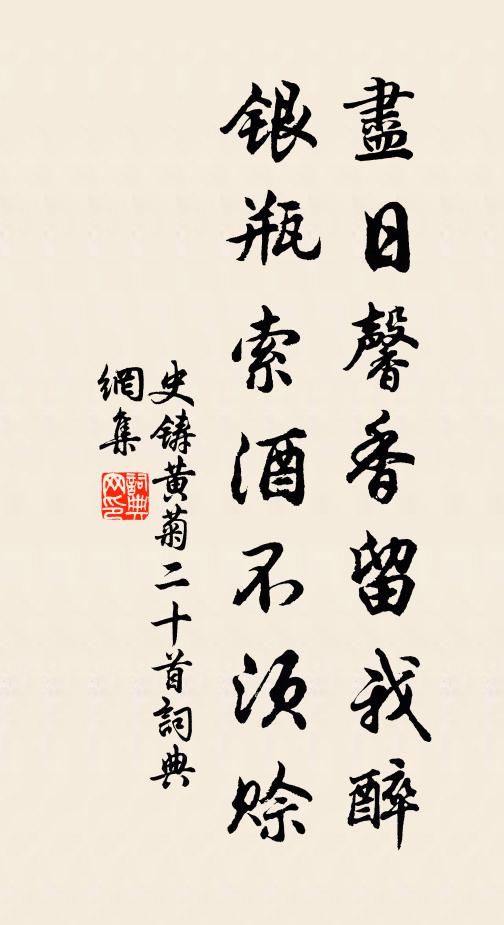 盡日馨香留我醉
銀瓶索酒不須赊
史鑄黄菊二十首詞典
網集
詞典
网印